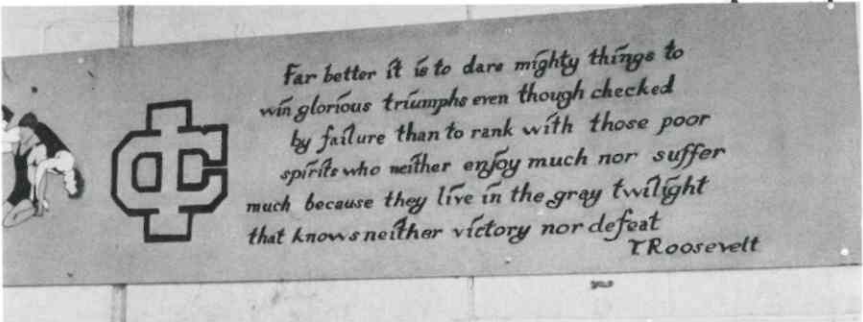 Far better it is to dare mighty things to
win glorious triumphs even though checked
by failure than to rank with those poor
spirits who neither enjoy much nor suffer
much because they live in the gray twilight
that knows neither victory nor defeat
TRoosevelt